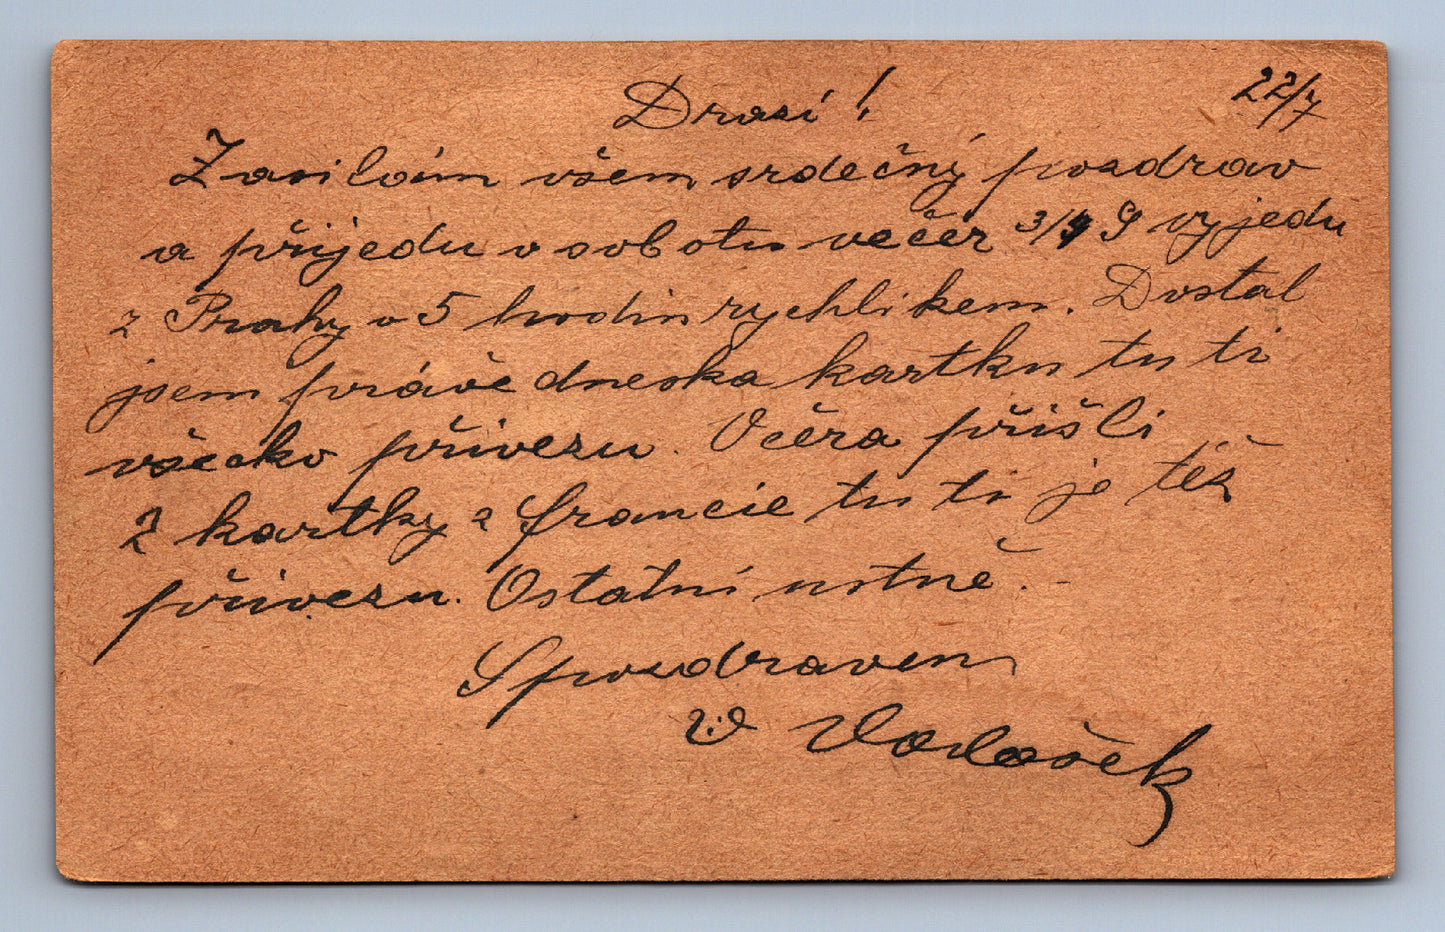 22/7
Drazí!
Zasilám všem srdečný pozdrav
a přijedu v sobotu večér 3/ 9 vyjedu
z Prahy v 5 hodin rychlikem. Dostal
jsem právě dneska kartku tu ti
všecko přivezu. Včéra přišli
2 kartky z francie tu ti je též
přivezu. Ostatní ustně.
S pozdravem
V Vodasek